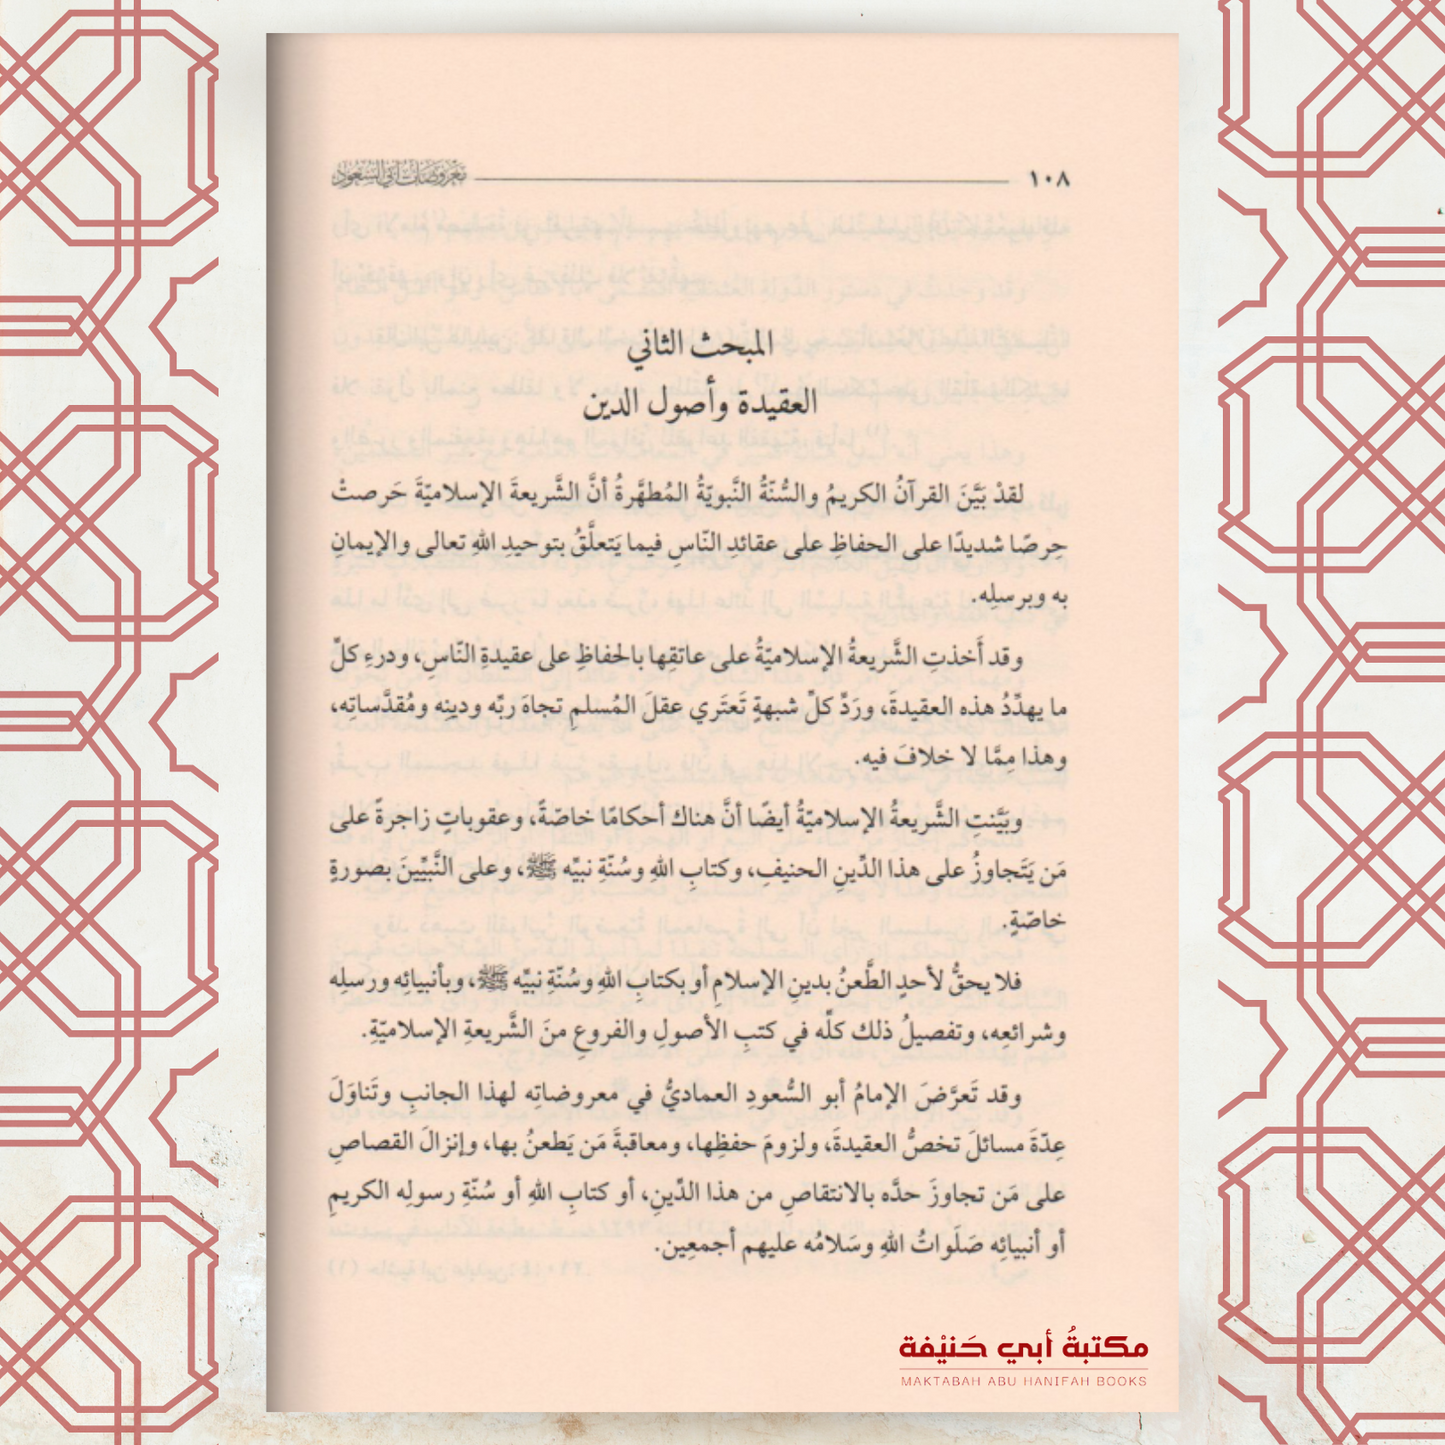 ١٠٨
معروضات أبي السعود
المبحث الثاني
العقيدة وأصول الدين
لقدْ بَيَّنَ القرآنُ الكريمُ والسُّنّةُ النَّبويّةُ المُطهَّرةُ أنَّ الشَّريعةَ الإسلاميّةَ حَرصتْ
حِرصًا شديدًا على الحفاظِ على عقائدِ النّاسِ فيما يَتعلَّقُ بتوحيدِ اللهِ تعالى والإيمانِ
به وبرسلِه.
وقد أَخذتِ الشَّريعةُ الإسلاميّةُ على عاتقِها بالحفاظِ على عقيدةِ النّاسِ، ودرءِ كلِّ
ما يهدِّدُ هذه العقيدةَ، ورَدِّ كلِّ شبهةٍ تَعتَري عقلَ المُسلمِ تجاهَ ربِّه ودينِه ومُقدَّساتِه،
وهذا مِمَّا لا خلافَ فيه.
وبَيَّنتِ الشَّريعةُ الإسلاميّةُ أيضًا أنَّ هناك أحكامًا خاصّةً، وعقوباتٍ زاجرةً على
مَن يَتَجاوزُ على هذا الدِّينِ الحنيفِ، وكتابِ اللهِ وسُنّةِ نبيِّه ﷺ، وعلى النَّبيِّينَ بصورةٍ
خاصّةٍ.
فلا يحقُّ لأحدٍ الطَّعنُ بدينِ الإسلامِ أو بكتابِ اللهِ وسُنّةِ نبيِّه ﷺ، وبأنبيائِه ورسلِه
وشرائعِه، وتفصيلُ ذلك كلِّه في كتبِ الأصولِ والفروعِ منَ الشَّريعةِ الإسلاميّةِ.
وقد تَعرَّضَ الإمامُ أبو السُّعودِ العماديُّ في معروضاتِه لهذا الجانبِ وتَناوَلَ
عِدّةَ مسائلَ تخصُّ العقيدةَ، ولزومَ حفظِها، ومعاقبةَ مَن يَطعنُ بها، وإنزالَ القصاصِ
على مَن تجاوزَ حدَّه بالانتقاصِ من هذا الدِّينِ، أو كتابِ اللهِ أو سُنّةِ رسولِه الكريمِ
أو أنبيائِه صَلَواتُ اللهِ وسَلامُه عليهم أجمعِين.
مكتبةُ أبي حَنيْفة
MAKTABAH ABU HANIFAH BOOKS